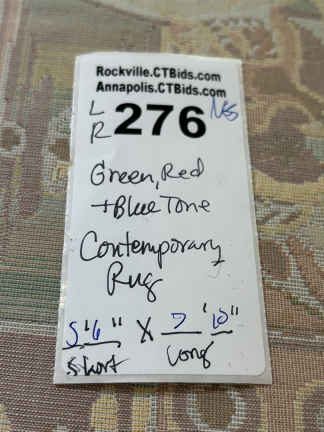 Rockville.CTBids.com
Annapolis.CTBids.com
LR 276
Green, Red
+ Blue Tone
Contemporary
Rug
5'6" X 7'10"
short long